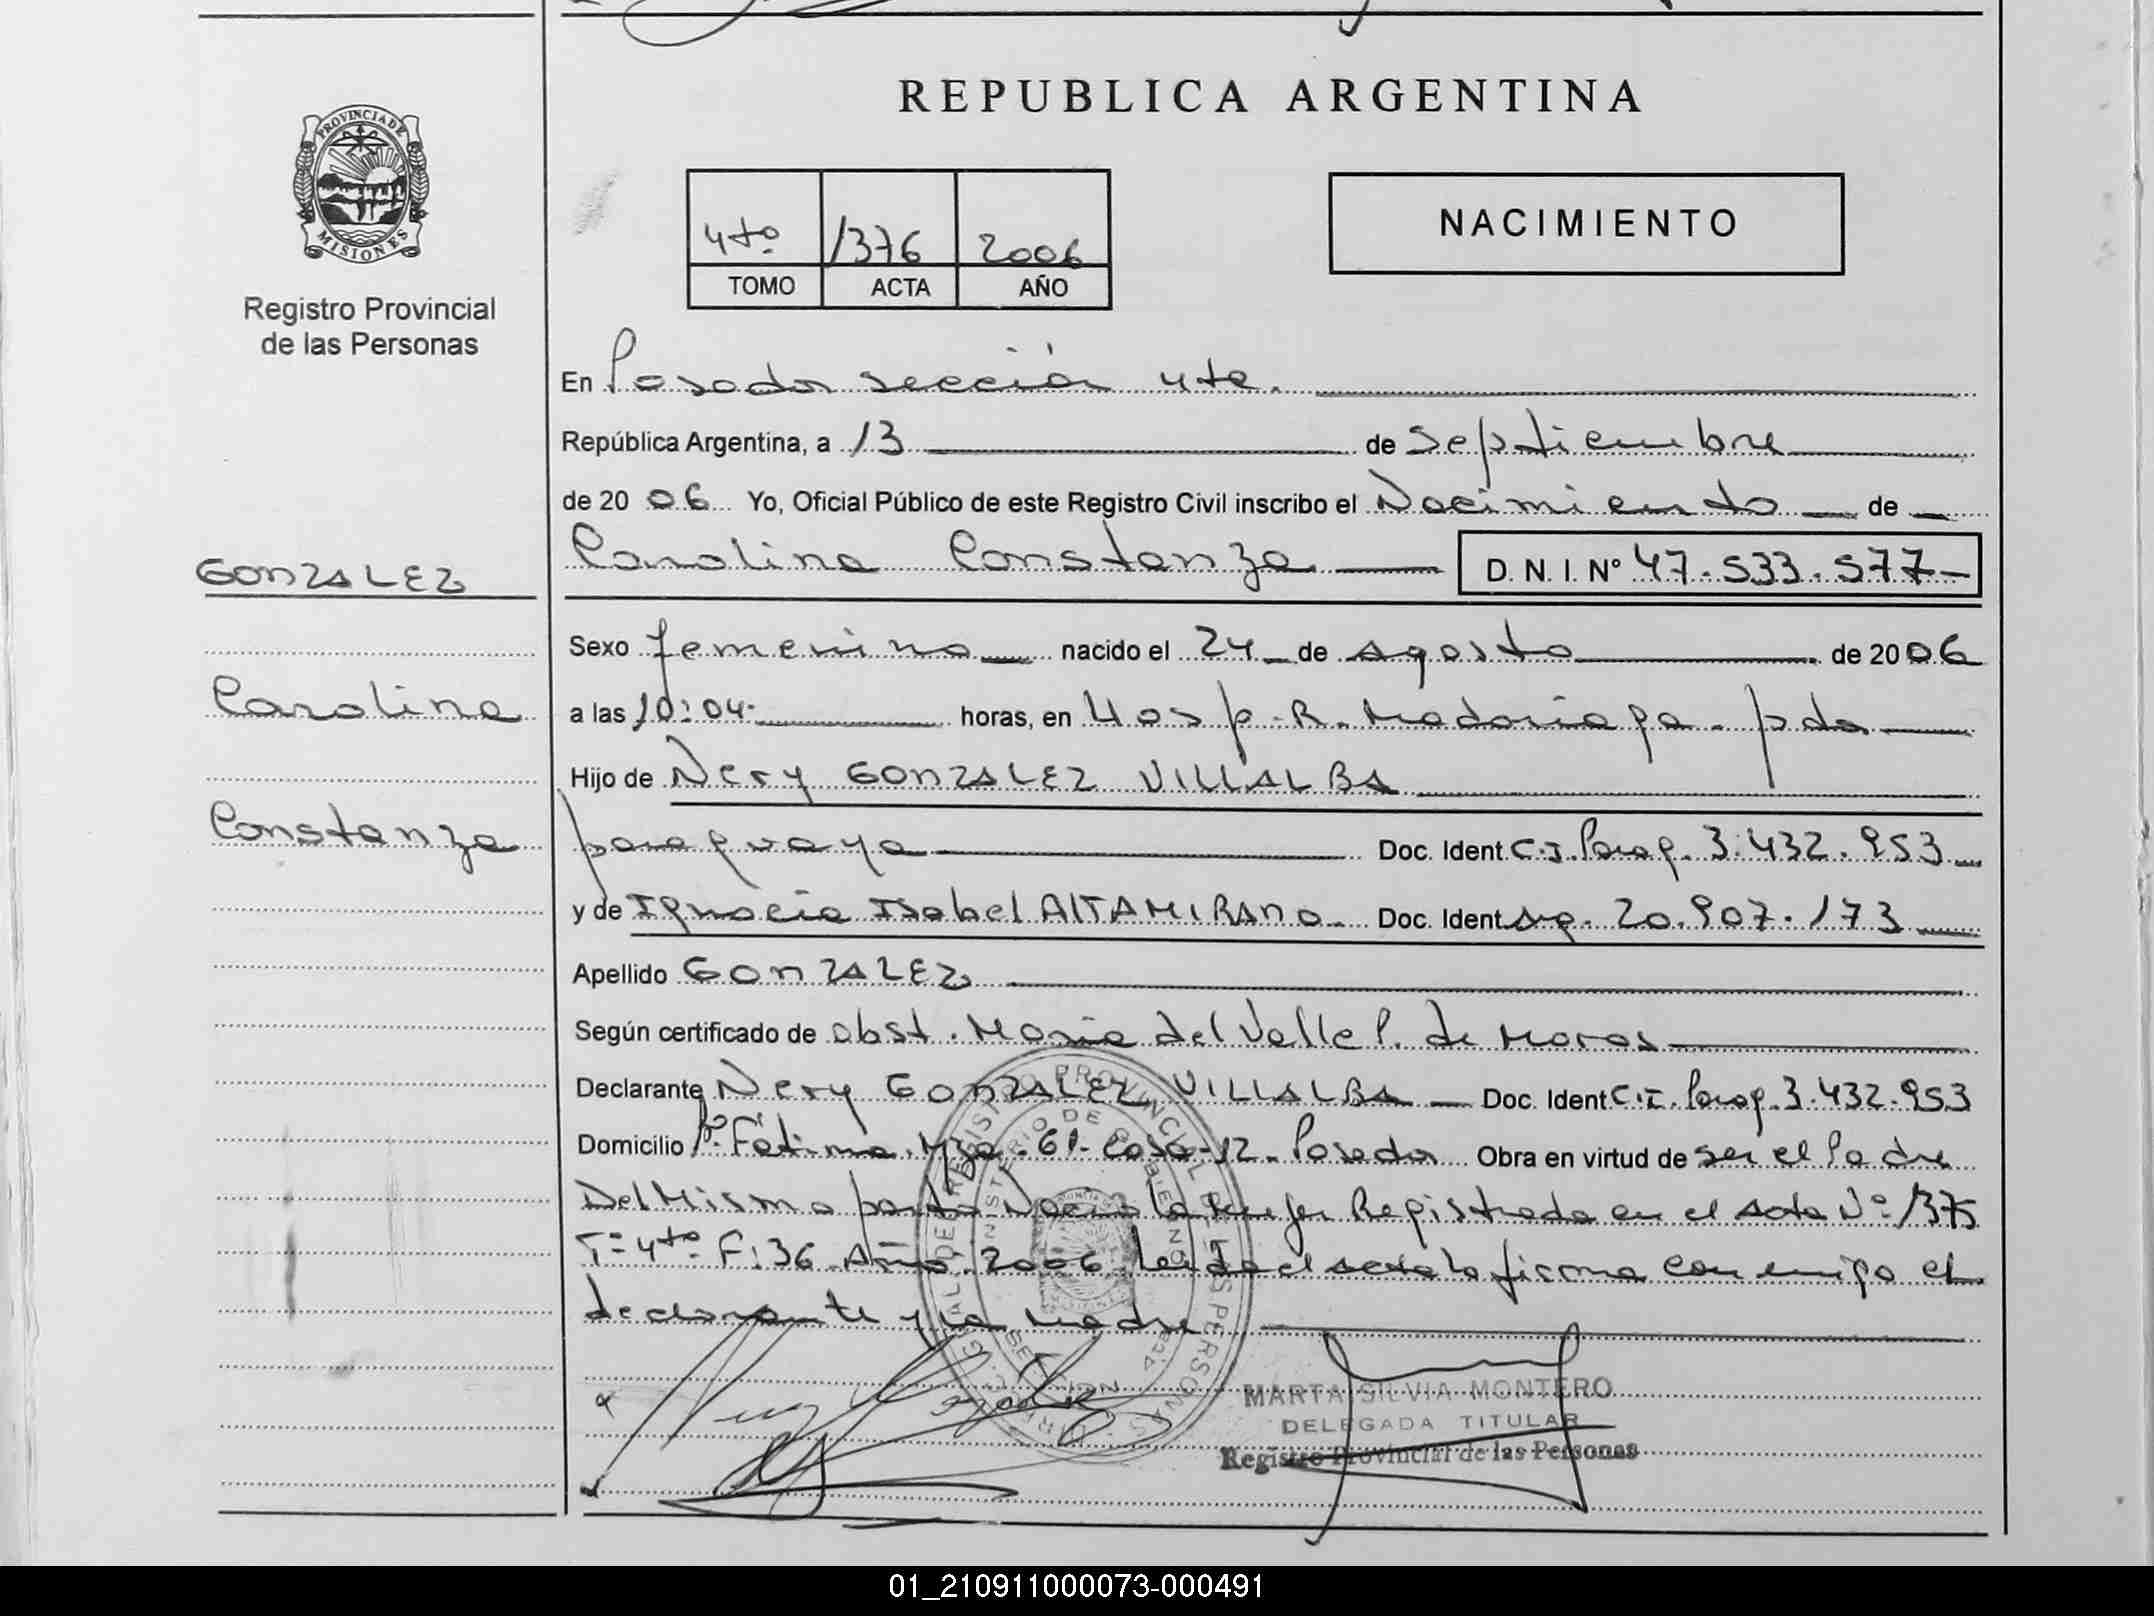 REPUBLICA ARGENTINA
PROVINCIA DE
MISIONES
Registro Provincial
de las Personas
4to 1376 2006
TOMO ACTA AÑO
NACIMIENTO
En Posadas sección 4ta.
República Argentina, a 13 de septiembre
de 2006 Yo, Oficial Público de este Registro Civil inscribo el Nacimiento de
GONZALEZ
Carolina Constanza D. N. I. Nº 47.533.577
Sexo femenino nacido el 24 de Agosto de 2006
Carolina
a las 10:04 horas, en Hosp. R. Madariaga. pdas
Hijo de Nery GONZALEZ VILLALBA
Constanza
paraguaya Doc. Ident. C.I. Parag. 3.432.953
y de Ignacia Isabel ALTAMIRANO Doc. Ident. Arg. 20.907.173
Apellido GONZALEZ
Según certificado de obst. Maria del Valle P. de Moras
Declarante Nery GONZALEZ VILLALBA Doc. Ident C.I. Parag. 3.432.953
Domicilio Bº Fátima. Mza. 61. Casa-12. Posadas Obra en virtud de ser el Padre
Del Mismo parto Nació la Mujer Registrada en el acta Nº 1375
Tº 4to F: 36 Año 2006. Leída el acta la firma conmigo el
declarante y la Madre
MARTA SILVIA MONTERO
DELEGADA TITULAR
Registro Provincial de las Personas
01_210911000073-000491